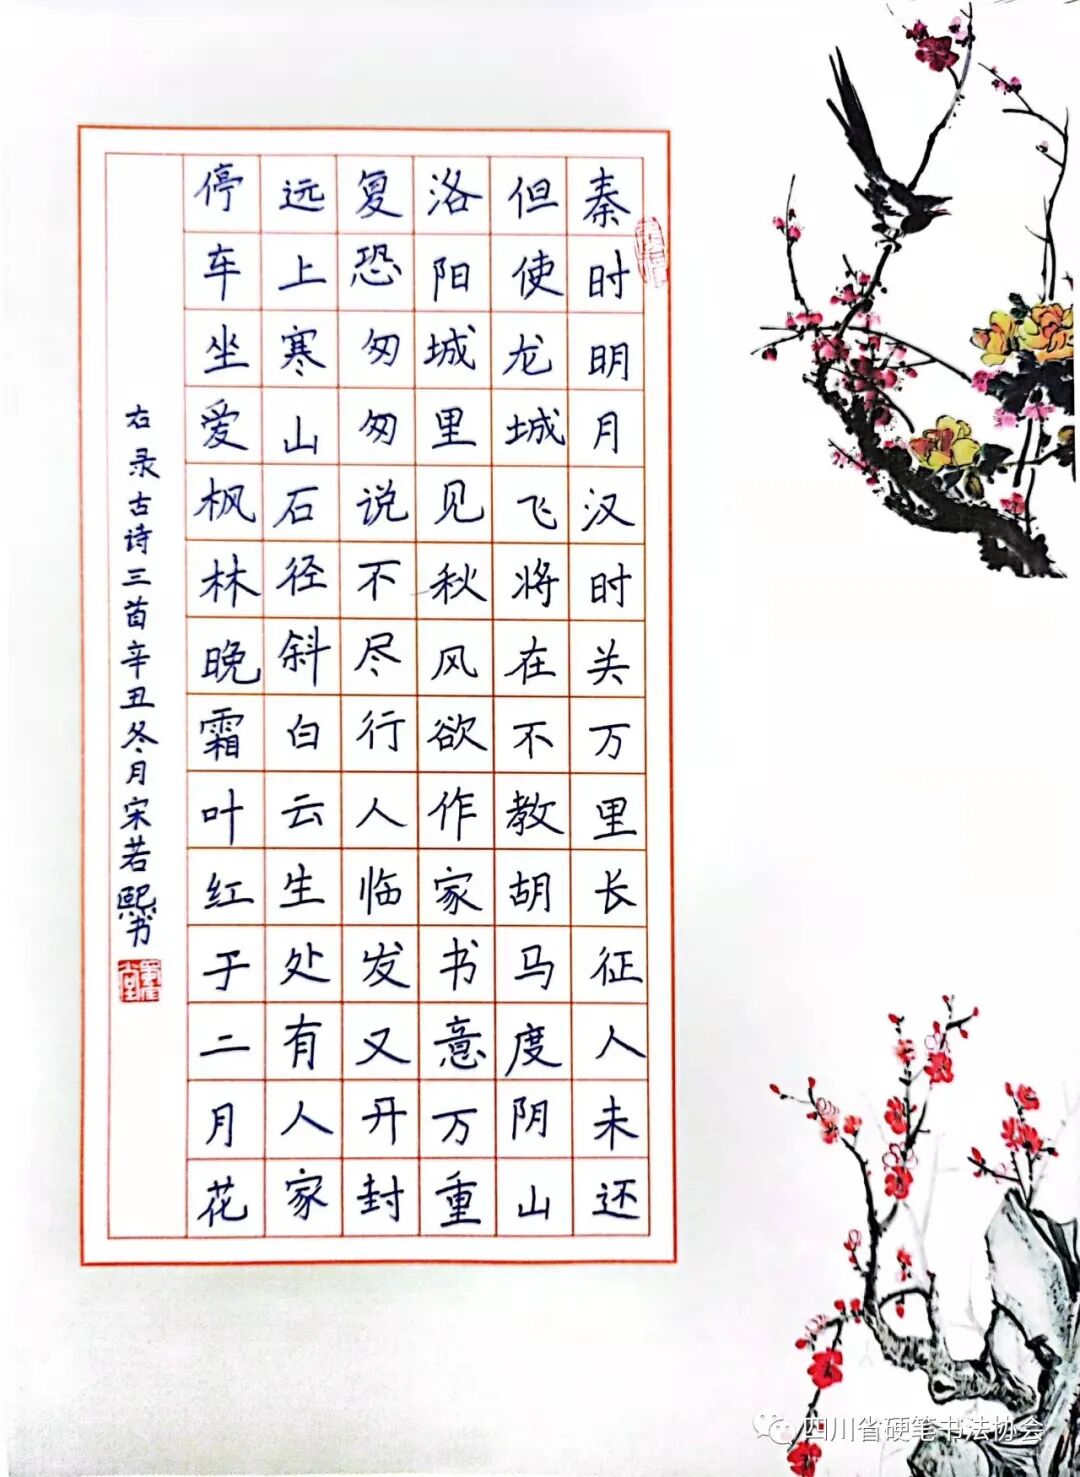 秦时明月汉时关万里长征人未还
但使龙城飞将在不教胡马度阴山
洛阳城里见秋风欲作家书意万重
复恐匆匆说不尽行人临发又开封
远上寒山石径斜白云生处有人家
停车坐爱枫林晚霜叶红于二月花
右录古诗三首辛丑冬月宋若熙书
四川省硬笔书法协会